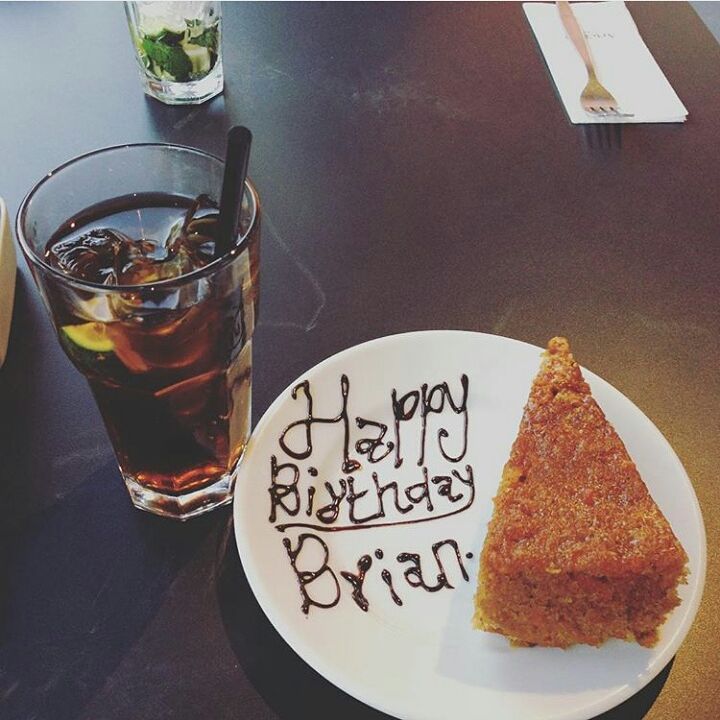 Happy
Birthday
Brian.